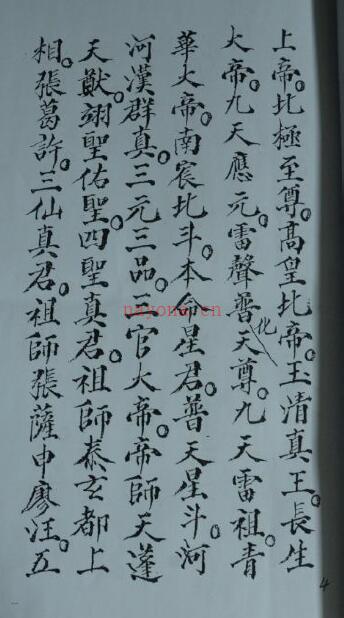 上帝。北極至尊。高皇北帝。玉清真王。長生
大帝。九天應元。雷聲普化天尊。九天雷祖。青
華大帝。南宸北斗。本命星君。普天星斗。河
河漢群真。三元三品。三官大帝。帝師天蓬
天猷。翊聖佑聖。四聖真君。祖師泰玄都上
相。張葛許。三仙真君。祖師張薩申廖汪。五
nayona.cn
4